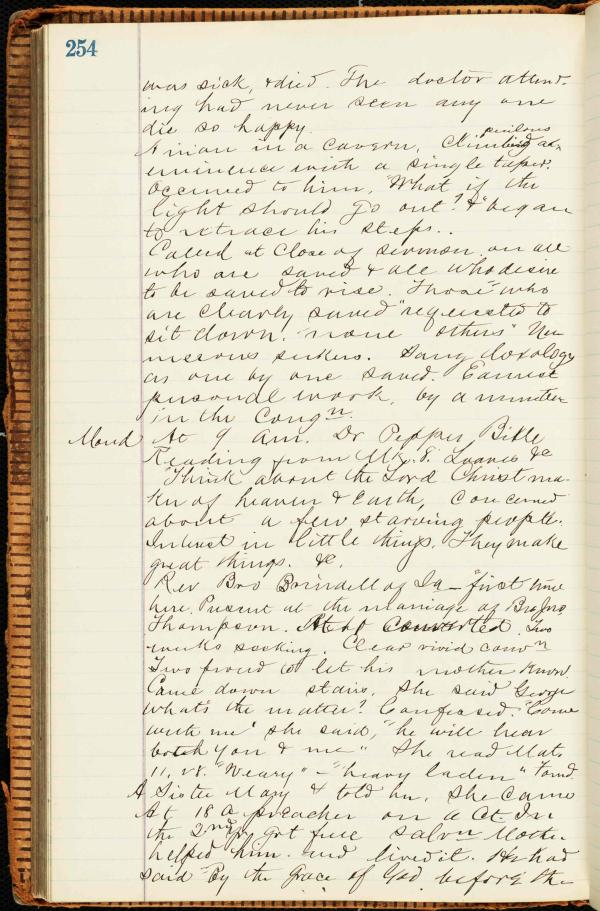 254
was sick, & died. The doctor attend-
ing had never seen any one
die so happy.
perilous
A man in a cavern, Climbing an
eminence with a single taper.
Occurred to him, "What if the
light should go out? & began
to retrace his steps..
Called at Close of sermon on all
who are saved & all who desire
to be saved to rise. Those "who
are clearly saved" requested to
sit down. none "others" Nu-
merous seekers. Sang doxology
as one by one saved. Earnest
personal work, by a minister
in the Congn.
Mond At 9 am. Dr Pepper, Bible
Reading from Mk. 8. Loaves &c
"Think about the Lord Christ ma-
ker of heaven & earth, concerned
about a few starving people.
Interest in little things. They make
great things. &c.
Rev Bro Brindell of Ia - "first time
here. Present at the marriage of Bro Jno
Thompson. converted. Two
weeks seeking. Clear vivid convn
Two proud to let his mother know.
Came down stairs. She said George
what's the matter? Confessed. "Come
with me" she said, "he will hear
both you & me" She read Mat.
11, 28. "Weary" - "heavy laden" Found.
A Sister Mary & told her. She came
At 18 a preacher on a Ct. In
the 2nd yr got full salvn Mother
helped him and lived it. He had
said "By the grace of God before the